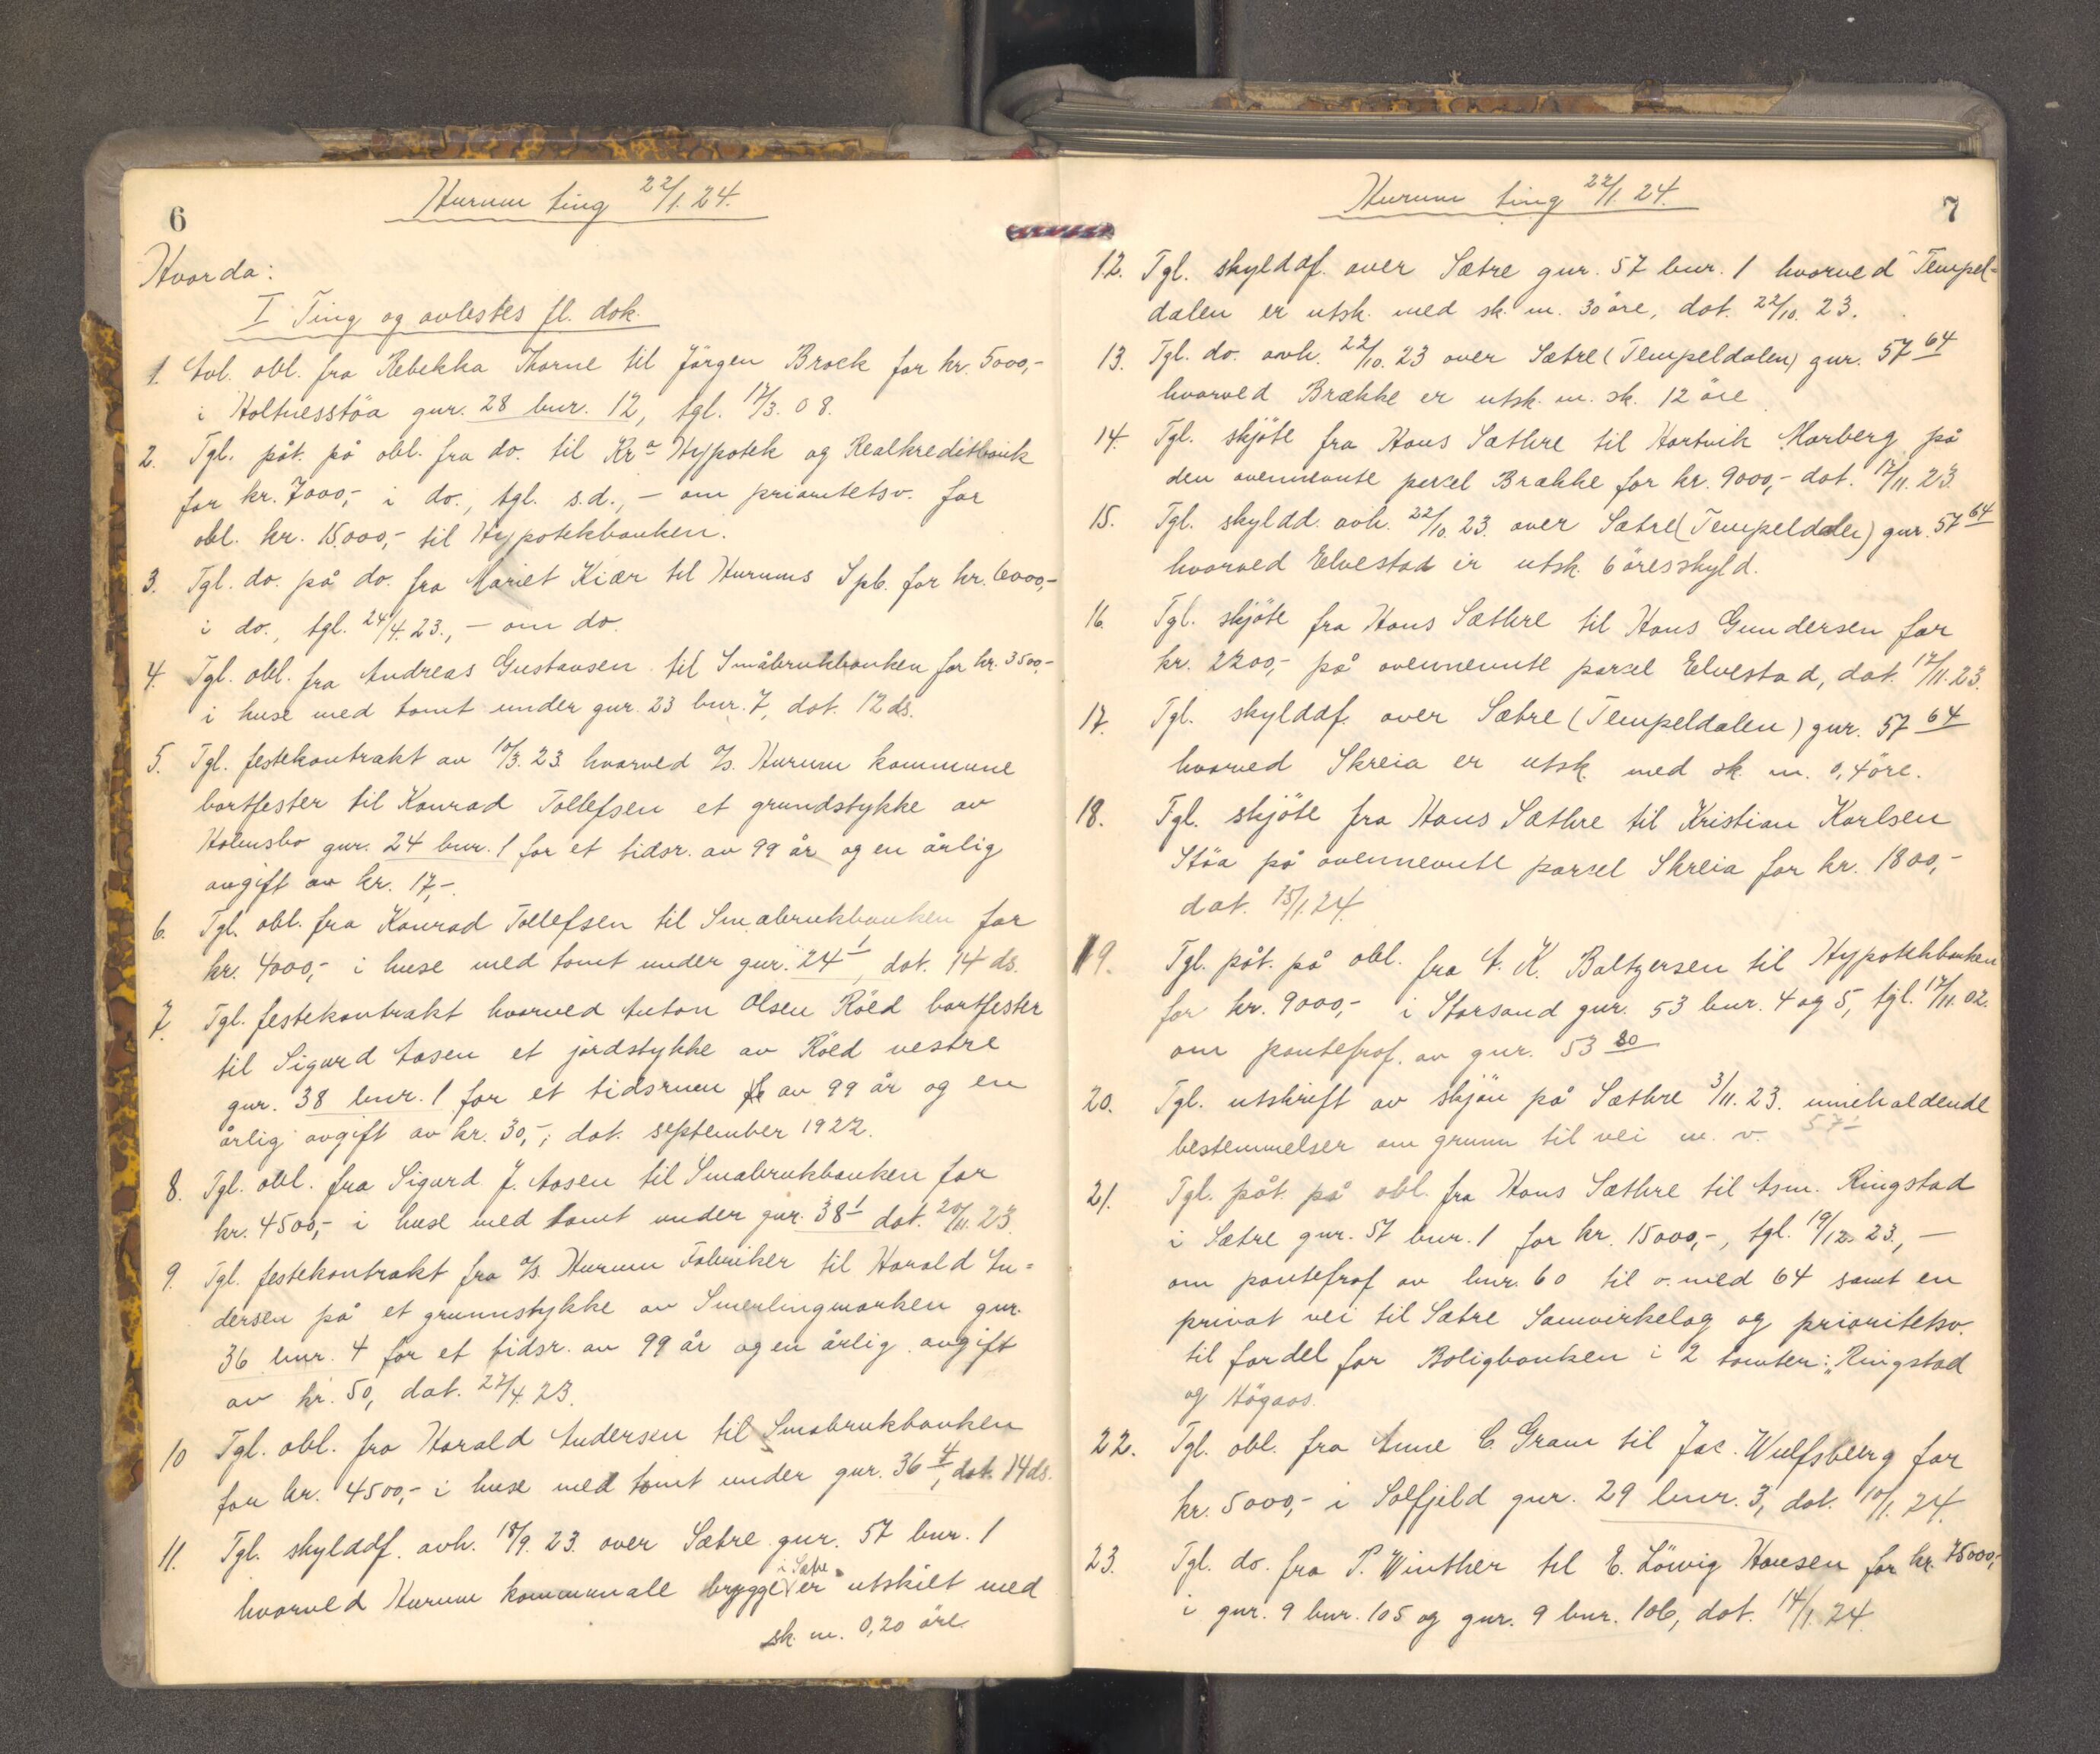 6
Hurum ting 22/1. 24.
Hvorda:
I Ting og avlestes fl. dok.
1. Avl. obl. fra Rebekka Thorne til Jörgen Brock for kr. 5000,-
i Holtnesstöa gnr. 28 bnr. 12, tgl. 17/3. 08.
2. Tgl. påt. på obl. fra do. til Kra Hypotek og Realkreditbank
for kr. 7000,- i do., tgl. s.d., - om prioritetsv. for
obl. kr. 15.000,- til Hypotekbanken.
3. Tgl. do. på do. fra Mariet Kiær til Hurums Spb. for kr. 6000,-
i do., tgl. 24/4. 23., - om do.
4. Tgl. obl. fra Andreas Gustavsen til Småbrukbanken for kr. 3500,-
i huse med tomt under gnr. 23 bnr. 7, dat. 12 ds.
5. Tgl. festekontrakt av 10/3. 23 hvorved A/S. Hurum kommune
bortfester til Konrad Tollefsen et grundstykke av
Holmsbo gnr. 24 bnr. 1 for et tidsr. av 99 år og en årlig
avgift av kr. 17,-.
6. Tgl. obl. fra Konrad Tollefsen til Småbrukbanken for
kr. 4000,- i huse med tomt under gnr. 24 1, dat. 14 ds.
7. Tgl. festekontrakt hvorved Anton Olsen Röed bortfester
til Sigurd Aasen et jordstykke av Röed vestre
gnr. 38 bnr. 1 for et tidsrum av 99 år og en
årlig avgift av kr. 30,-, dat. september 1922.
8. Tgl. obl. fra Sigurd J. Aasen til Småbrukbanken for
kr. 4500,- i huse med tomt under gnr. 38 1 dat. 20/11. 23.
9. Tgl. festekontrakt fra A/S. Hurum Fabriker til Harald An=
dersen på et grunnstykke av Smerlingmarken gnr.
36 bnr. 4 for et tidsr. av 99 år og en årlig avgift
av kr. 50, dat. 27/4. 23.
10 Tgl. obl. fra Harald Andersen til Småbrukbanken
for kr. 4500,- i huse med tomt under gnr. 36 4, dat. 14 ds.
11. Tgl. skylddf. avh. 18/9. 23. over Sætre gnr. 57 bnr. 1
hvorved Hurum kommunale brygge i Sætre er utskilt med
sk. m. 0,20 öre.
Hurum ting 22/1. 24.
7
12. Tgl. skylddf. over Sætre gnr. 57 bnr. 1 hvorved Tempel=
dalen er utsk. med sk. m. 30 öre, dat. 22/10. 23.
13. Tgl. do. avh. 22/10. 23 over Sætre (Tempeldalen) gnr. 57 64
hvorved Brække er utsk. m. sk. 12 öre
14. Tgl. skjöte fra Hans Sæthre til Hartvik Morberg på
den ovennevnte parsel Brække for kr. 9000,- dat. 17/11. 23.
15. Tgl. skyldd. avh. 22/10. 23. over Sætre (Tempeldalen) gnr. 57 64
hvorved Elvestad er utsk. 6 öresskyld.
16. Tgl. skjöte fra Hans Sæthre til Hans Gundersen for
kr. 2200,- på ovennevnte parsel Elvestad, dat. 17/11. 23.
17. Tgl. skylddf. over Sætre (Tempeldalen) gnr. 57 64
hvorved Skreia er utsk. med sk. m. 0,4 öre.
18. Tgl. skjöte fra Hans Sæthre til Kristian Karlsen
Stöa på ovennevnte parsel Skreia for kr. 1800,-
dat. 15/1. 24.
19. Tgl. påt. på obl. fra A. K. Baltzersen til Hypotekbanken
for kr. 9000,- i Storsand gnr. 53 bnr. 4 og 5, tgl. 17/11. 02.
om pantefraf. av gnr. 53 80
20. Tgl. utskrift av skjön på Sæthre 3/11. 23. inneholdende
bestemmelser om grunn til vei m. v. 57
21. Tgl. påt. på obl. fra Hans Sæthre til Asm. Ringstad
i Sætre gnr. 57 bnr. 1 for kr. 15000,-, tgl. 19/12. 23., -
om pantefraf av bnr. 60 til o. med 64 samt en
privat vei til Sætre Samvirkelag og prioritetsv.
til fordel for Boligbanken i 2 tomter: „Ringstad
og Högaas.
22. Tgl. obl. fra Anne C. Gram til Jac. Wulfsberg for
kr. 5000,- i Solfjeld gnr. 29 bnr. 3, dat. 10/1. 24.
23. Tgl. do. fra P. Winther til E. Löwig Hansen for kr. 75000,-
i gnr. 9 bnr. 105 og gnr. 9 bnr. 106, dat. 14/1. 24.